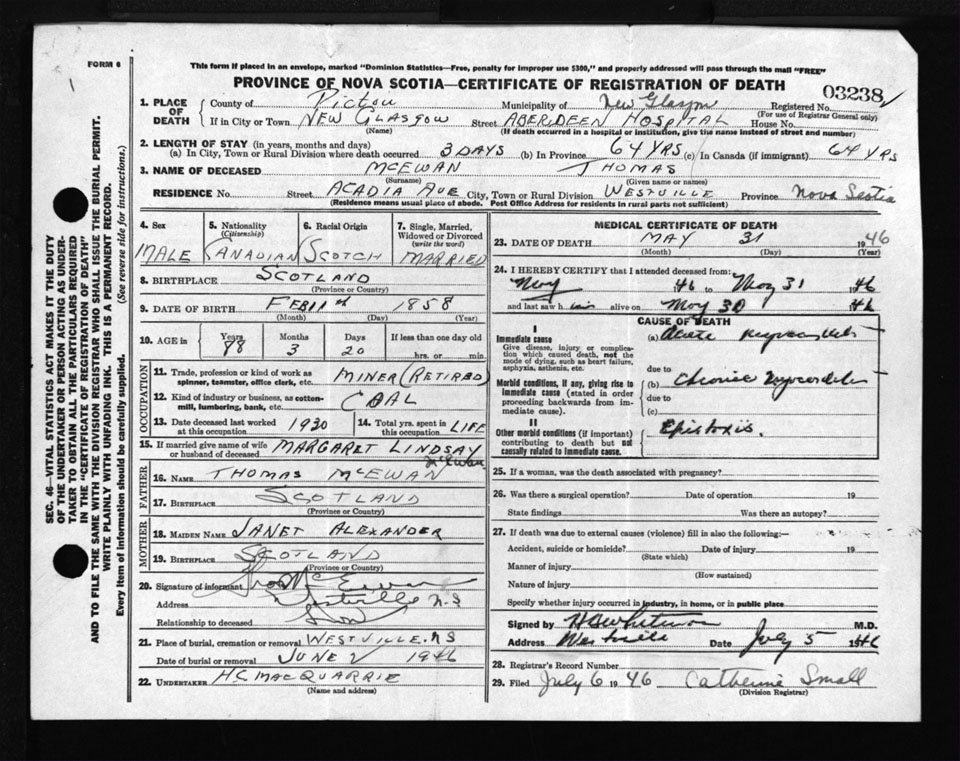 FORM 6
This form if placed in an envelope, marked "Dominion Statistics—Free, penalty for improper use $300," and properly addressed will pass through the mail "FREE"
PROVINCE OF NOVA SCOTIA—CERTIFICATE OF REGISTRATION OF DEATH
03238
1. PLACE OF DEATH
County of Pictou Municipality of New Glasgow Registered No.
(For use of Registrar General only)
If in City or Town NEW GLASGOW Street ABERDEEN HOSPITAL House No.
(Name) (If death occurred in a hospital or institution, give the name instead of street and number)
2. LENGTH OF STAY (in years, months and days)
(a) In City, Town or Rural Division where death occurred 3 DAYS (b) In Province 64 YRS (c) In Canada (if immigrant) 64 YRS
3. NAME OF DECEASED MCEWAN THOMAS
(Surname) (Given name or names)
RESIDENCE No. Street ACADIA AVE City, Town or Rural Division WESTVILLE Province Nova Scotia
(Residence means usual place of abode. Post Office Address for residents in rural parts not sufficient)
4. Sex
MALE
5. Nationality (Citizenship)
CANADIAN
6. Racial Origin
SCOTCH
7. Single, Married, Widowed or Divorced (write the word)
MARRIED
8. BIRTHPLACE SCOTLAND
(Province or Country)
9. DATE OF BIRTH FEB 11 1858
(Month) (Day) (Year)
10. AGE in Years Months Days If less than one day
88 3 20 hrs. or min.
OCCUPATION
11. Trade, profession or kind of work as spinner, teamster, office clerk, etc. MINER (RETIRED)
12. Kind of industry or business, as cotton-mill, lumbering, bank, etc. COAL
13. Date deceased last worked at this occupation 1930
14. Total yrs. spent in this occupation LIFE
15. If married give name of wife or husband of deceased MARGARET LINDSAY McEwan
FATHER
16. NAME THOMAS MCEWAN
17. BIRTHPLACE SCOTLAND
(Province or Country)
MOTHER
18. MAIDEN NAME JANET ALEXANDER
19. BIRTHPLACE SCOTLAND
(Province or Country)
20. Signature of informant Thos McEwan
Address Westville N.S
Relationship to deceased Son
21. Place of burial, cremation or removal WESTVILLE. NS
Date of burial or removal JUNE 2 1946
22. UNDERTAKER H.C MACQUARRIE
(Name and address)
MEDICAL CERTIFICATE OF DEATH
23. DATE OF DEATH MAY 31 1946
(Month) (Day) (Year)
24. I HEREBY CERTIFY that I attended deceased from:
May 1946 to May 31 1946
and last saw h im alive on May 30 1946
CAUSE OF DEATH
I
Immediate cause
Give disease, injury or complication which caused death, not the mode of dying, such as heart failure, asphyxia, asthenia, etc.
(a) Acute Myocarditis
due to
Morbid conditions, if any, giving rise to immediate cause (stated in order proceeding backwards from immediate cause).
(b) Chronic Myocarditis
due to
(c)
II
Other morbid conditions (if important) contributing to death but not causally related to immediate cause.
Epistaxis.
25. If a woman, was the death associated with pregnancy?
26. Was there a surgical operation? Date of operation 19
State findings Was there an autopsy?
27. If death was due to external causes (violence) fill in also the following:—
Accident, suicide or homicide? Date of injury 19
(State which)
Manner of injury
(How sustained)
Nature of injury
Specify whether injury occurred in industry, in home, or in public place
Signed by M.D.
Address Westville Date July 5 1946
28. Registrar's Record Number
29. Filed July 6 1946 Catherine Small
(Division Registrar)
SEC. 46—VITAL STATISTICS ACT MAKES IT THE DUTY
OF THE UNDERTAKER OR PERSON ACTING AS UNDER-
TAKER TO OBTAIN ALL THE PARTICULARS REQUIRED
IN THE "CERTIFICATE OF REGISTRATION OF DEATH"
AND TO FILE THE SAME WITH THE DIVISION REGISTRAR WHO SHALL ISSUE THE BURIAL PERMIT.
WRITE PLAINLY WITH UNFADING INK. THIS IS A PERMANENT RECORD.
Every item of information should be carefully supplied. (See reverse side for instructions.)